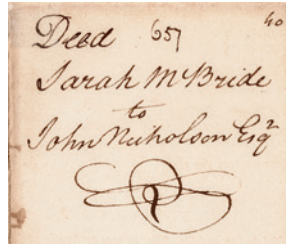 40
Deed 657
Sarah McBride
to
John Nicholson Esqr